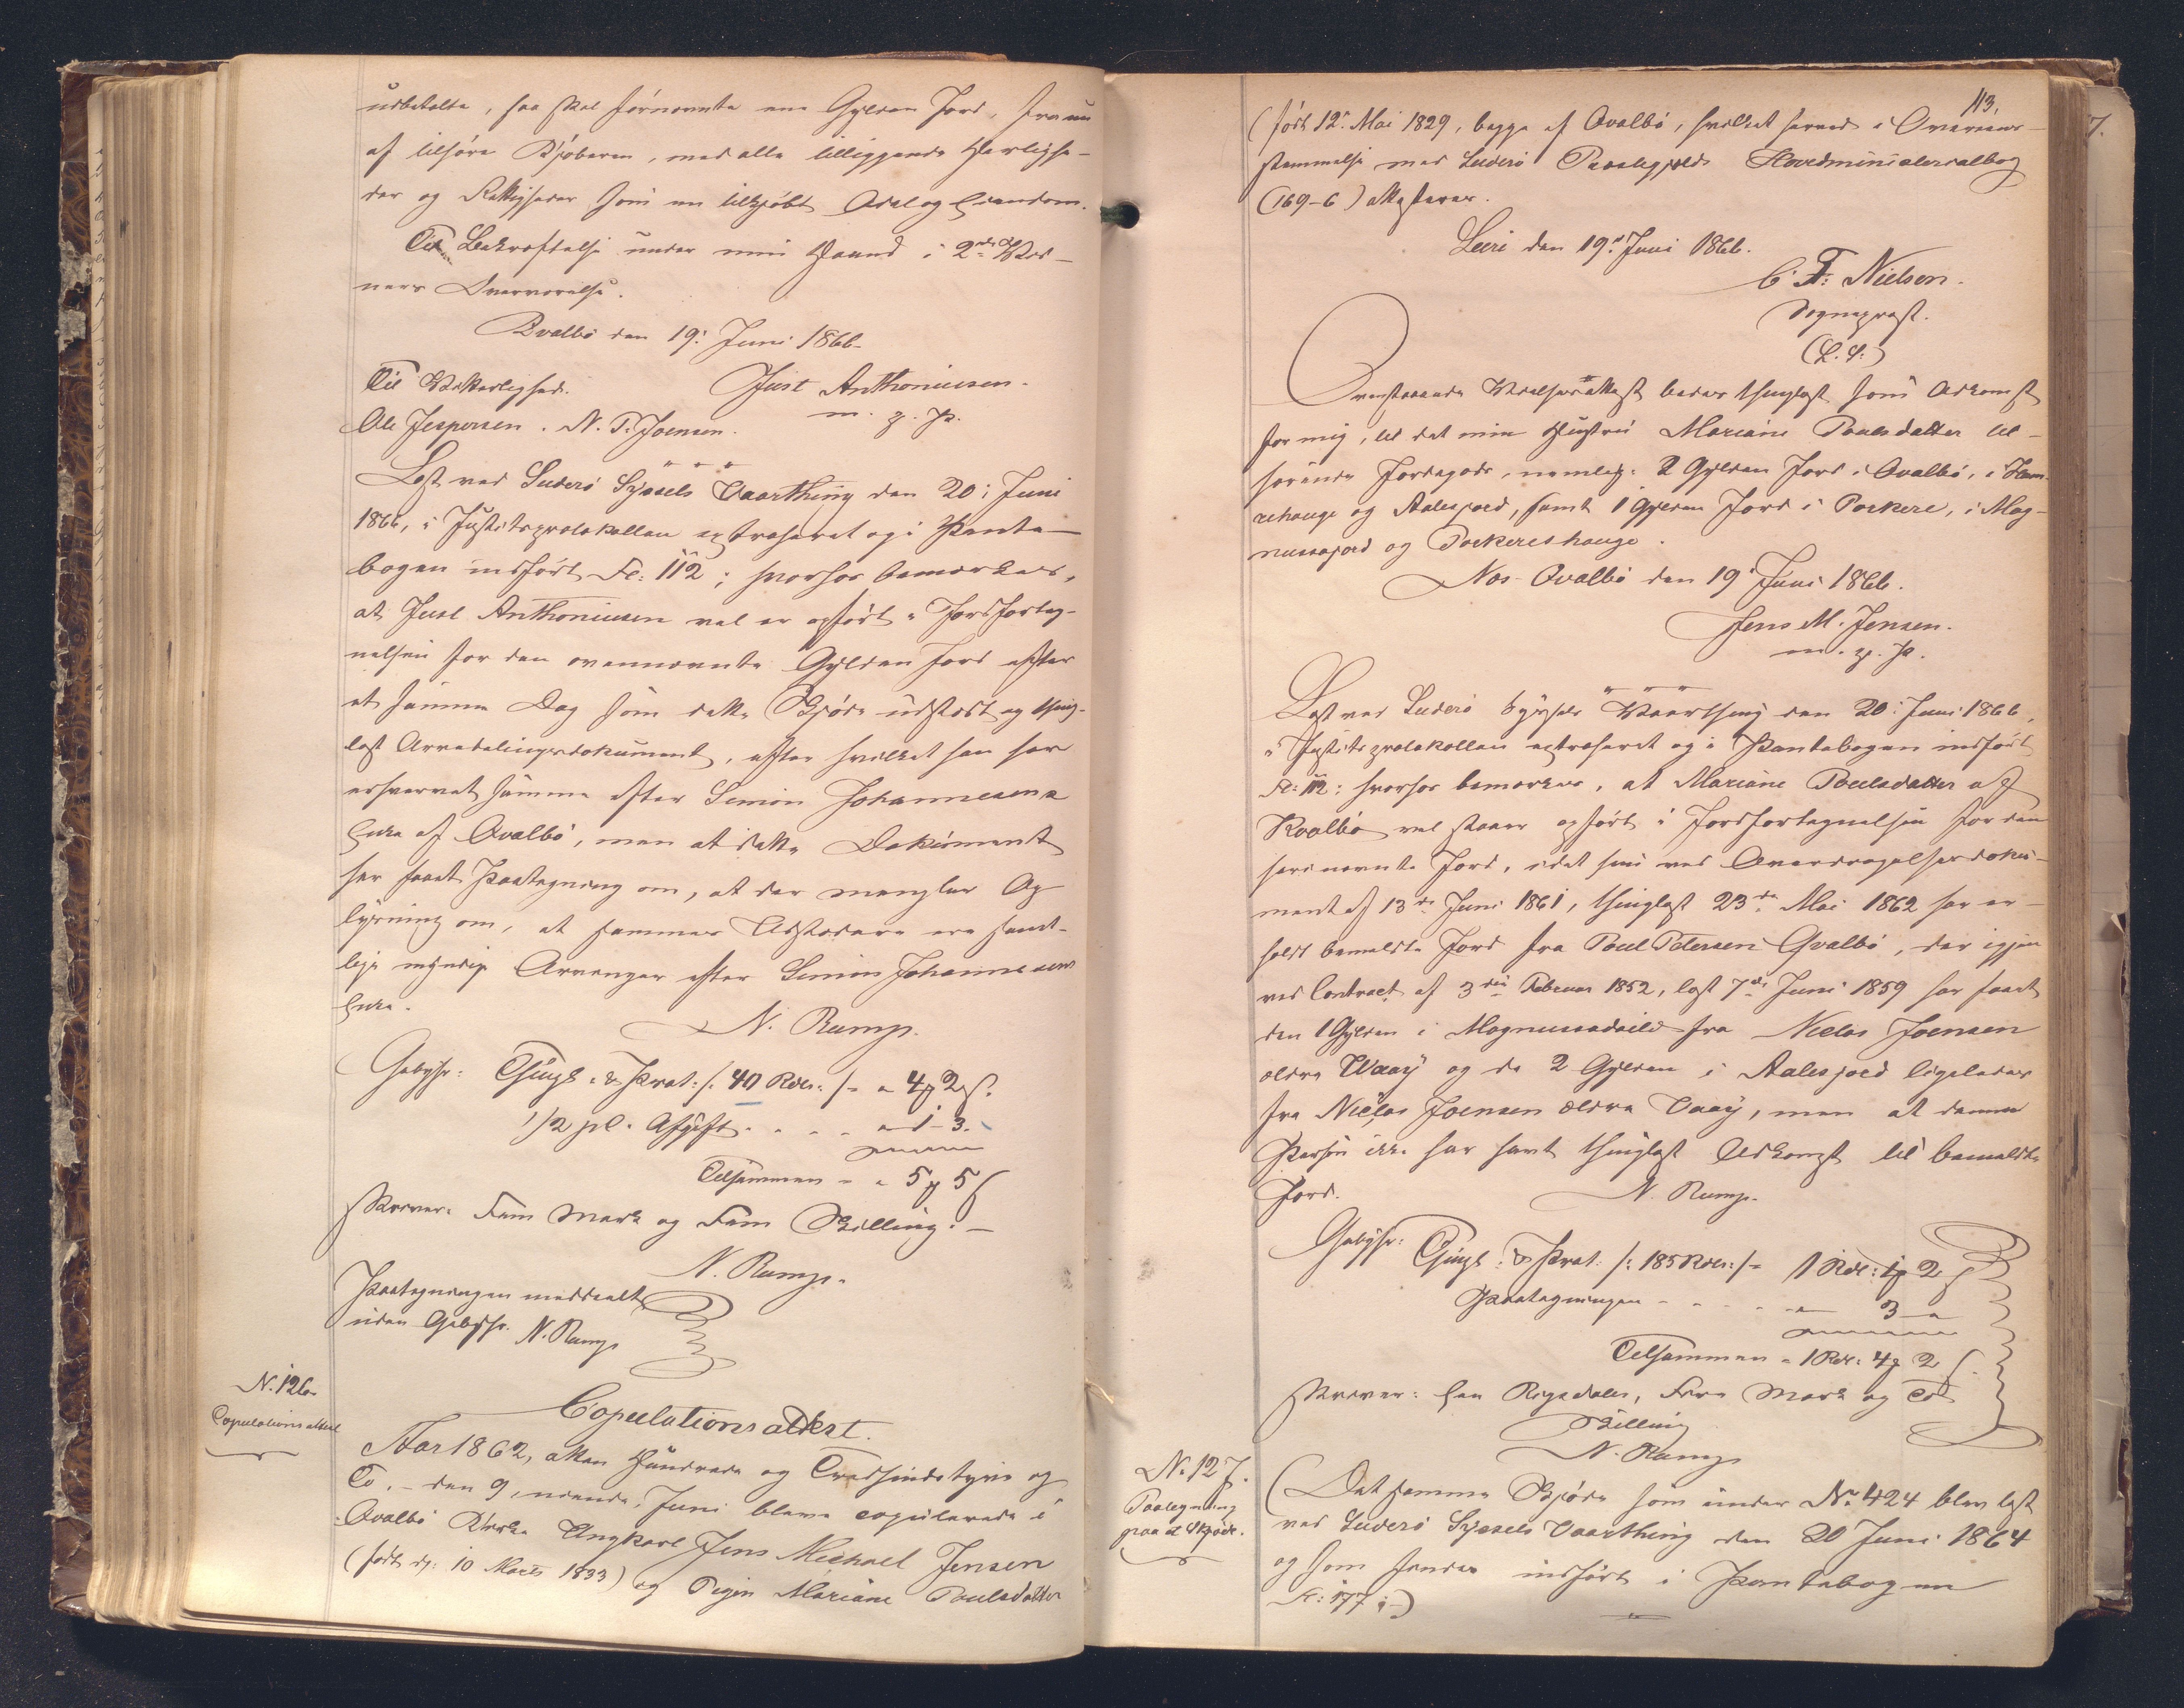 udbetalte, saa skalførnævnte ene Gylden Jord, fra nu
af tilhøre Kjøberen, med alle tilliggende Herlighe-
der og Rettigheder som en tilkjøbt Odel og Eiendom.
Til Bekræftelse under min Haand i 2nde Vid-
ners Overværelse.
Qvalbø den 19: Juni 1866.
Til Vitterlighed. Just Anthoniusen.
Ole Jespersen. N. P. Joensen. m. f. P.
Læst ved Suderø Syssels Vaarthing den 20: Juni
1866, i Justitsprotokollen extraheret og i Pante-
bogen indført Fol: 112; hvorhos bemærkes,
at Just Anthoniusen vel er opført i Jordforteg-
nelsen for den ovennævnte Gylden Jord efter
et samme Dag som dette Skjøde udstedt og thing-
læst Arvedelingsdokument, efter hvilket han har
erhvervet samme efter Simon Johannesens
Enke af Qvalbø, men at dette Dokument
har faaet Paategning om, at der mangler Op
lysning om, at sammes Udstedere ere samt-
lige myndige Arvinger efter Simon Johannesens
Enke.
N. Rump.
Gebyhr: Thingl. & Prot: /: 40 Rdl: /- " 4 ꝳ 2 ß.
1/2 pCt. Afgift . . . . " 1 - 3.
Tilsammen - " 5 ꝳ 5 ß
skriver: Fem Mark og Fem Skilling. -
N. Rump.
Paategningen meddeelt
uden Gebyhr. N. Rump
N. 126.
Copulationsattest
Copulationsattest.
Aar 1862, atten Hundrede og Tredsindstyve og
To, - den 9, niende, Juni bleve copulerede i
Qvalbø Kirke Ungkarl Jens Michael Jensen
(født d: 10 Marts 1833) og Pigen Mariane Poulsdatter
113.
(født 12te Mai 1829, begge af Qvalbø, hvilket herved i Overens-
stemmelse med Suderø Præstegjelds Hovedministerialbog
(169-6) attesteres.
den 19de Juni 1866.
C. F. Nielsen.
Sognepræst.
(L. S.)
Ovenstaaende Vielsesattest bedes thinglæst som Adkomst
for mig, til det min Hustru Mariane Poulsdatter til-
hørende Jordegods, nemlig: 2 Gylden Jord i Qvalbø, i
rehauge og Aalesjord, samt 1 Gylden Jord i Porkere, i Mag-
nussajord og Porkereshauge.
Nes-Qvalbø den 19 Juni 1866.
Jens M. Jensen.
m. f. P.
Læst ved Suderø Syssels Vaarthing den 20: Juni 1866,
i Justitsprotokollen extraheret og i Pantebogen indført
Fol: 112: hvorhos bemærkes, at Mariane Poulsdatter af
Kvalbø vel staaer opført i Jordfortegnelsen for den
heri nævnte Jord, idet hun ved Overdragelsesdoku-
ment af 13de Juni 1861, thinglæst 23de Mai 1862 har er-
holdt bemeldte Jord fra Poul Petersen Qvalbø, der igjen
ved Contract af 3die Februar 1852, læst 7de Juni 1859 har faaet
den 1 Gylden i Magnussadeild fra Niclas Joensen
ældre Waay og de 2 Gylden i Aalesjord ligeledes
fra Niclas Joensen ældre Vaay, men at denne
Person ikke har havt thinglæst Adkomst til bemeldte
Jord.
N. Rump.
Gebyhr: Thingl: & Prot: /: 185 Rdl: /- 1 Rdl: 1 ꝳ 2 ß
Paategningen - - - - - 3 - "
Tilsammen - 1 Rdl: 4 ꝳ 2 ß.
skriver: Een Rigsdaler, Fire Mark og To
Skilling
N. Rump
N. 127.
Paategning
paa et Skjøde.
(Det samme Skjøde som under No 424 blev læst
ved Suderø Syssels Vaarthing den 20 Juni 1864
og som findes indført i Pantebogen
Fol: 177;-)